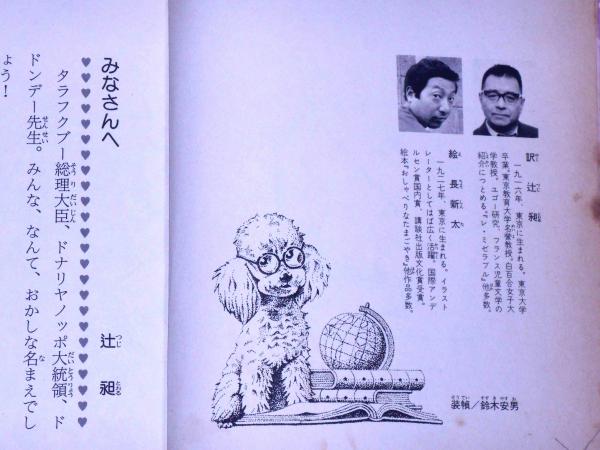 訳 辻 昶
一九一六年、東京に生まれる。東京大学
卒業。東京教育大学名誉教授。白百合女子大
学教授。ユゴー研究、フランス児童文学の
紹介につとめる。『レ・ミゼラブル』他多数。
絵 長 新太
一九二七年、東京に生まれる。イラスト
レーターとしてはば広く活躍。国際アンデ
ルセン賞国内賞、講談社出版文化賞受賞。
絵本『おしゃべりなたまごやき』他作品多数。
装幀/鈴木安男
みなさんへ
辻 昶
タラフクブー総理大臣、ドナリヤノッポ大統領、ド
ドンデー先生。みんな、なんて、おかしな名まえでし
ょう!